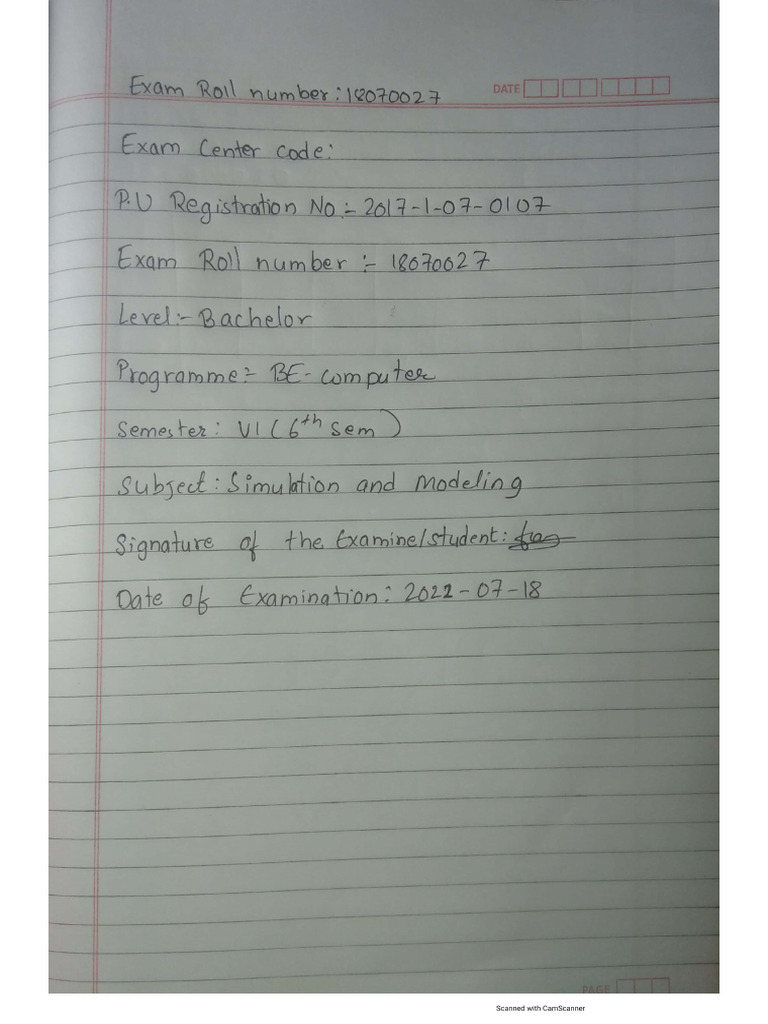 Exam Roll number: 18070027
DATE
Exam Center code:
P.U Registration No:- 2017-1-07-0107
Exam Roll number :- 18070027
Level:- Bachelor
Programme:- BE-computer
Semester: VI (6th sem)
Subject: Simulation and Modeling
Signature of the Examine/student:
Date of Examination: 2022-07-18
PAGE
Scanned with CamScanner